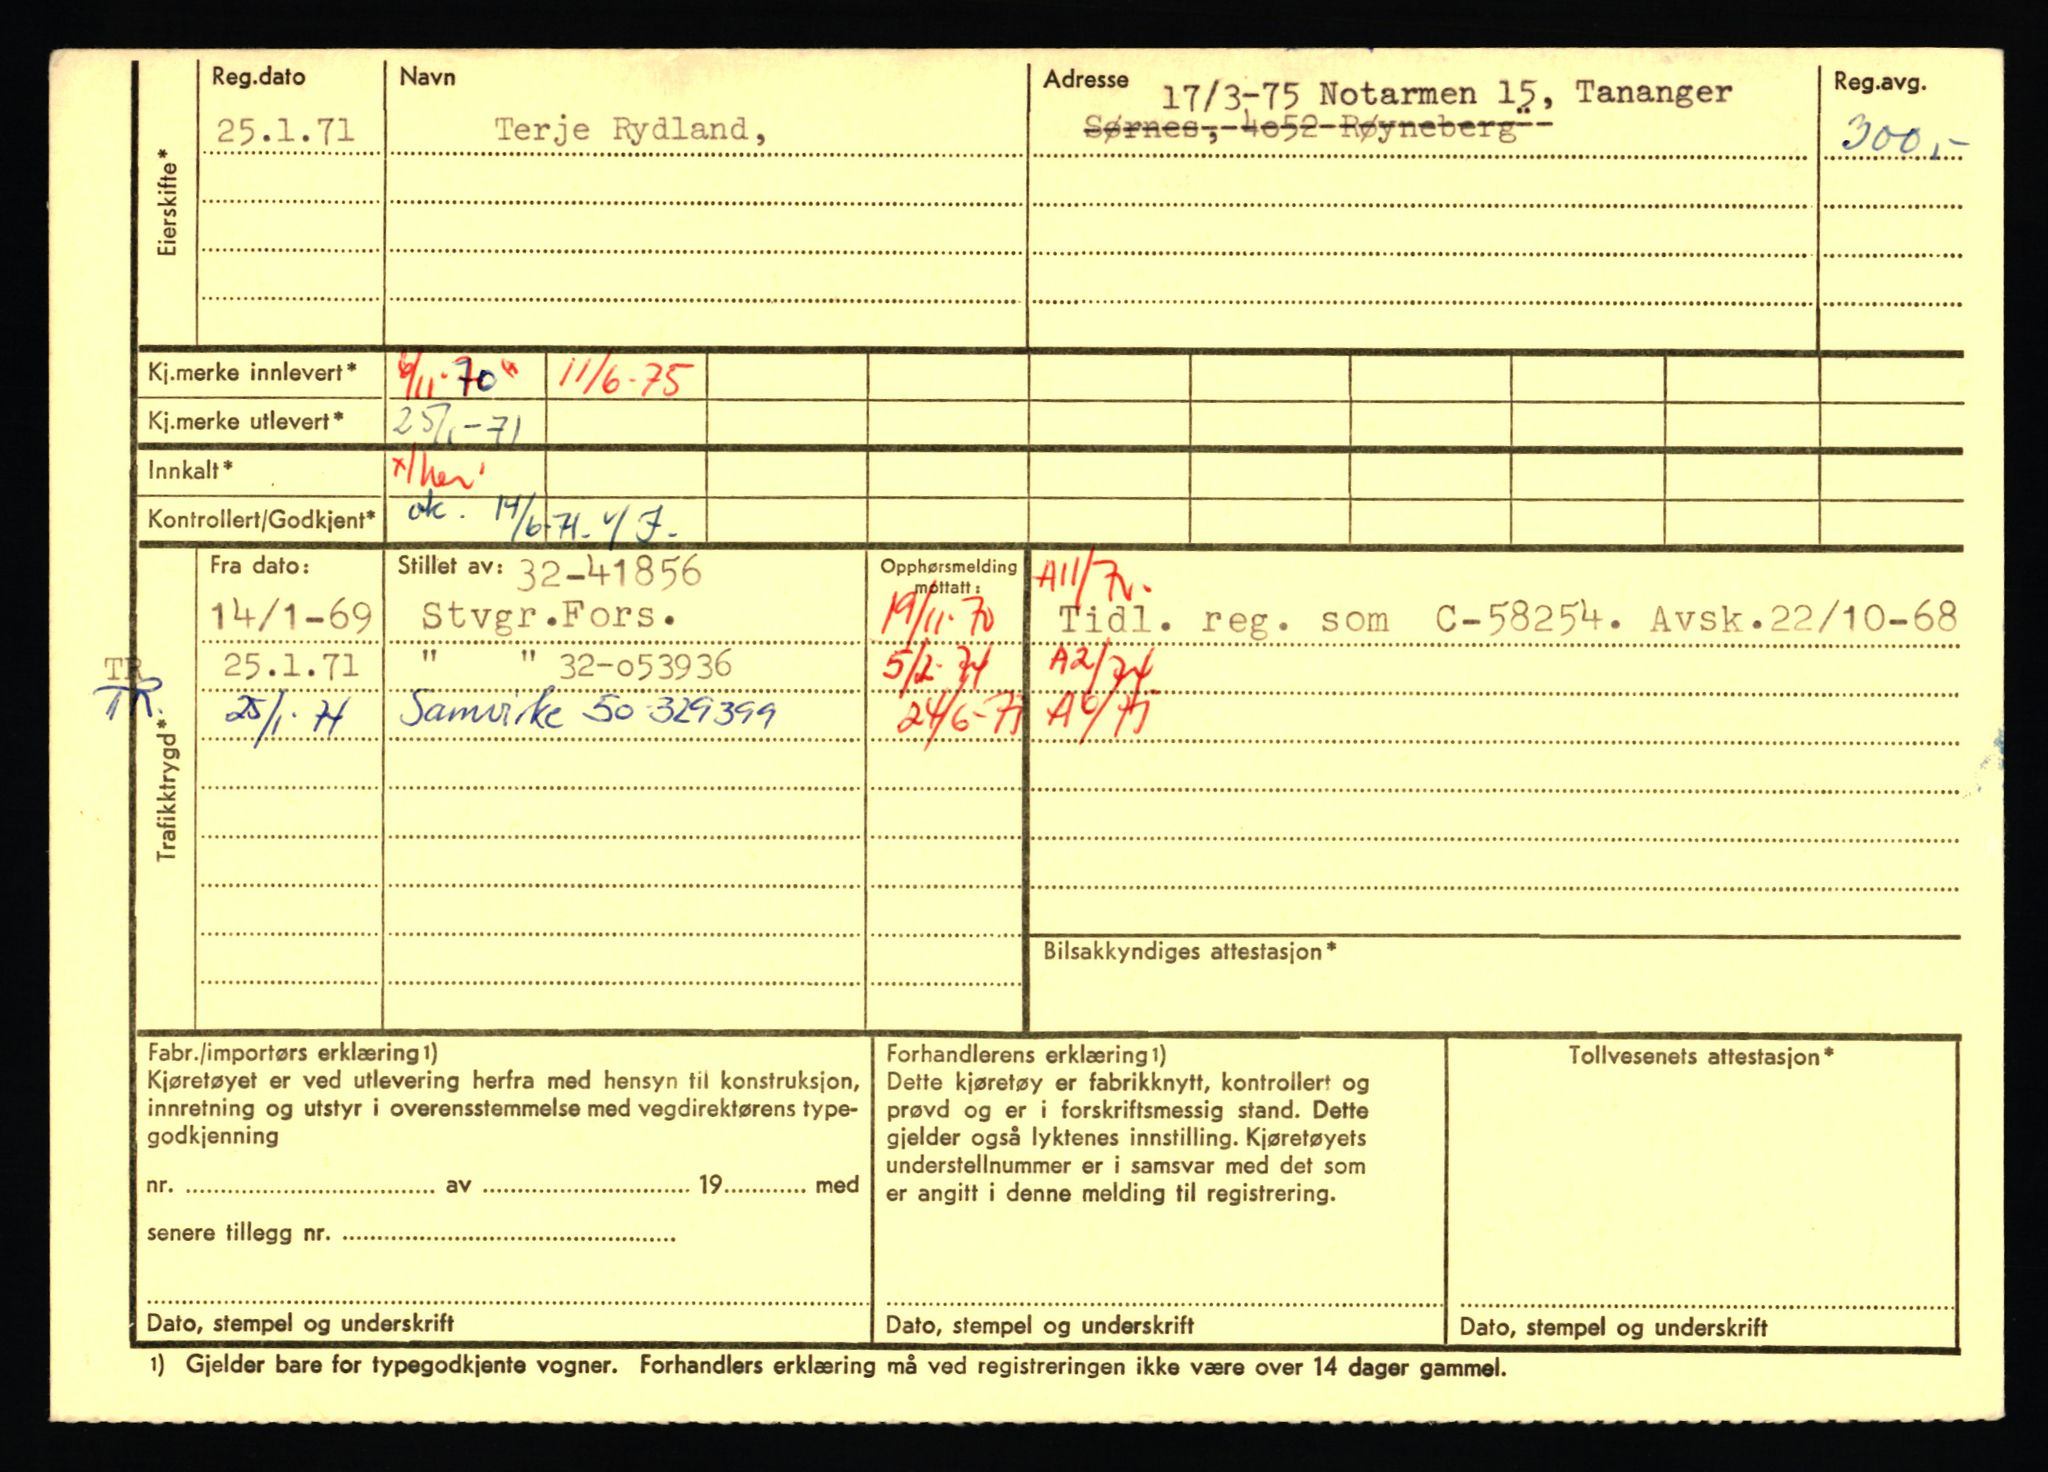 Reg.dato Navn Adresse 17/3-75 Notarmen 15, Tananger Reg.avg.
25.1.71 Terje Rydland, Sørnes, 4o52 Røyneberg 300,-
Eierskifte*
Kj.merke innlevert* 6/11-70 11/6-75
Kj.merke utlevert* 25/1-71
Innkalt* x/her
Kontrollert/Godkjent* ok. 14/6-71.
Fra dato: Stillet av: 32-41856 Opphørsmelding mottatt: A11/70.
14/1-69 Stvgr.Fors. 19/11-70 Tidl. reg. som C-58254. Avsk.22/10-68
TR 25.1.71 " " 32-o53936 5/2-74 A2/74
TR. 25/1-74 Samvirke 50-329399 24/6-75 A6/75
Trafikktrygd*
Bilsakkyndiges attestasjon*
Fabr./importørs erklæring1)
Kjøretøyet er ved utlevering herfra med hensyn til konstruksjon,
innretning og utstyr i overensstemmelse med vegdirektørens type-
godkjenning
nr. .......... av .......... 19.......... med
senere tillegg nr. ..........
Dato, stempel og underskrift
Forhandlerens erklæring1)
Dette kjøretøy er fabrikknytt, kontrollert og
prøvd og er i forskriftsmessig stand. Dette
gjelder også lyktenes innstilling. Kjøretøyets
understellnummer er i samsvar med det som
er angitt i denne melding til registrering.
Dato, stempel og underskrift
Tollvesenets attestasjon*
Dato, stempel og underskrift
1) Gjelder bare for typegodkjente vogner. Forhandlers erklæring må ved registreringen ikke være over 14 dager gammel.